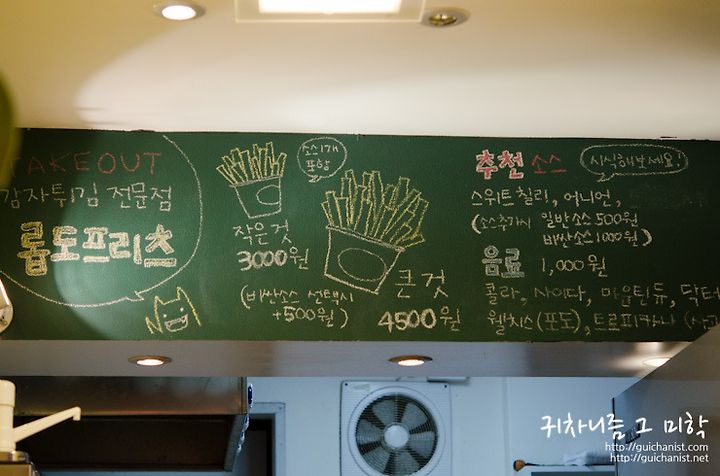 TAKEOUT
감자튀김 전문점
롭도프리츠
소스1개
포함
작은것
3000원
(비싼소스 선택시
+500원)
큰것
4500원
추천 소스
시식해보세요!
스위트칠리, 어니언,
(소스추가시 일반소스 500원
비싼소스 1000원)
음료 1,000원
콜라, 사이다, 마운틴듀, 닥터
웰치스(포도), 트로피카나
귀차니즘 그 미학
http://guichanist.com
http://guichanist.net